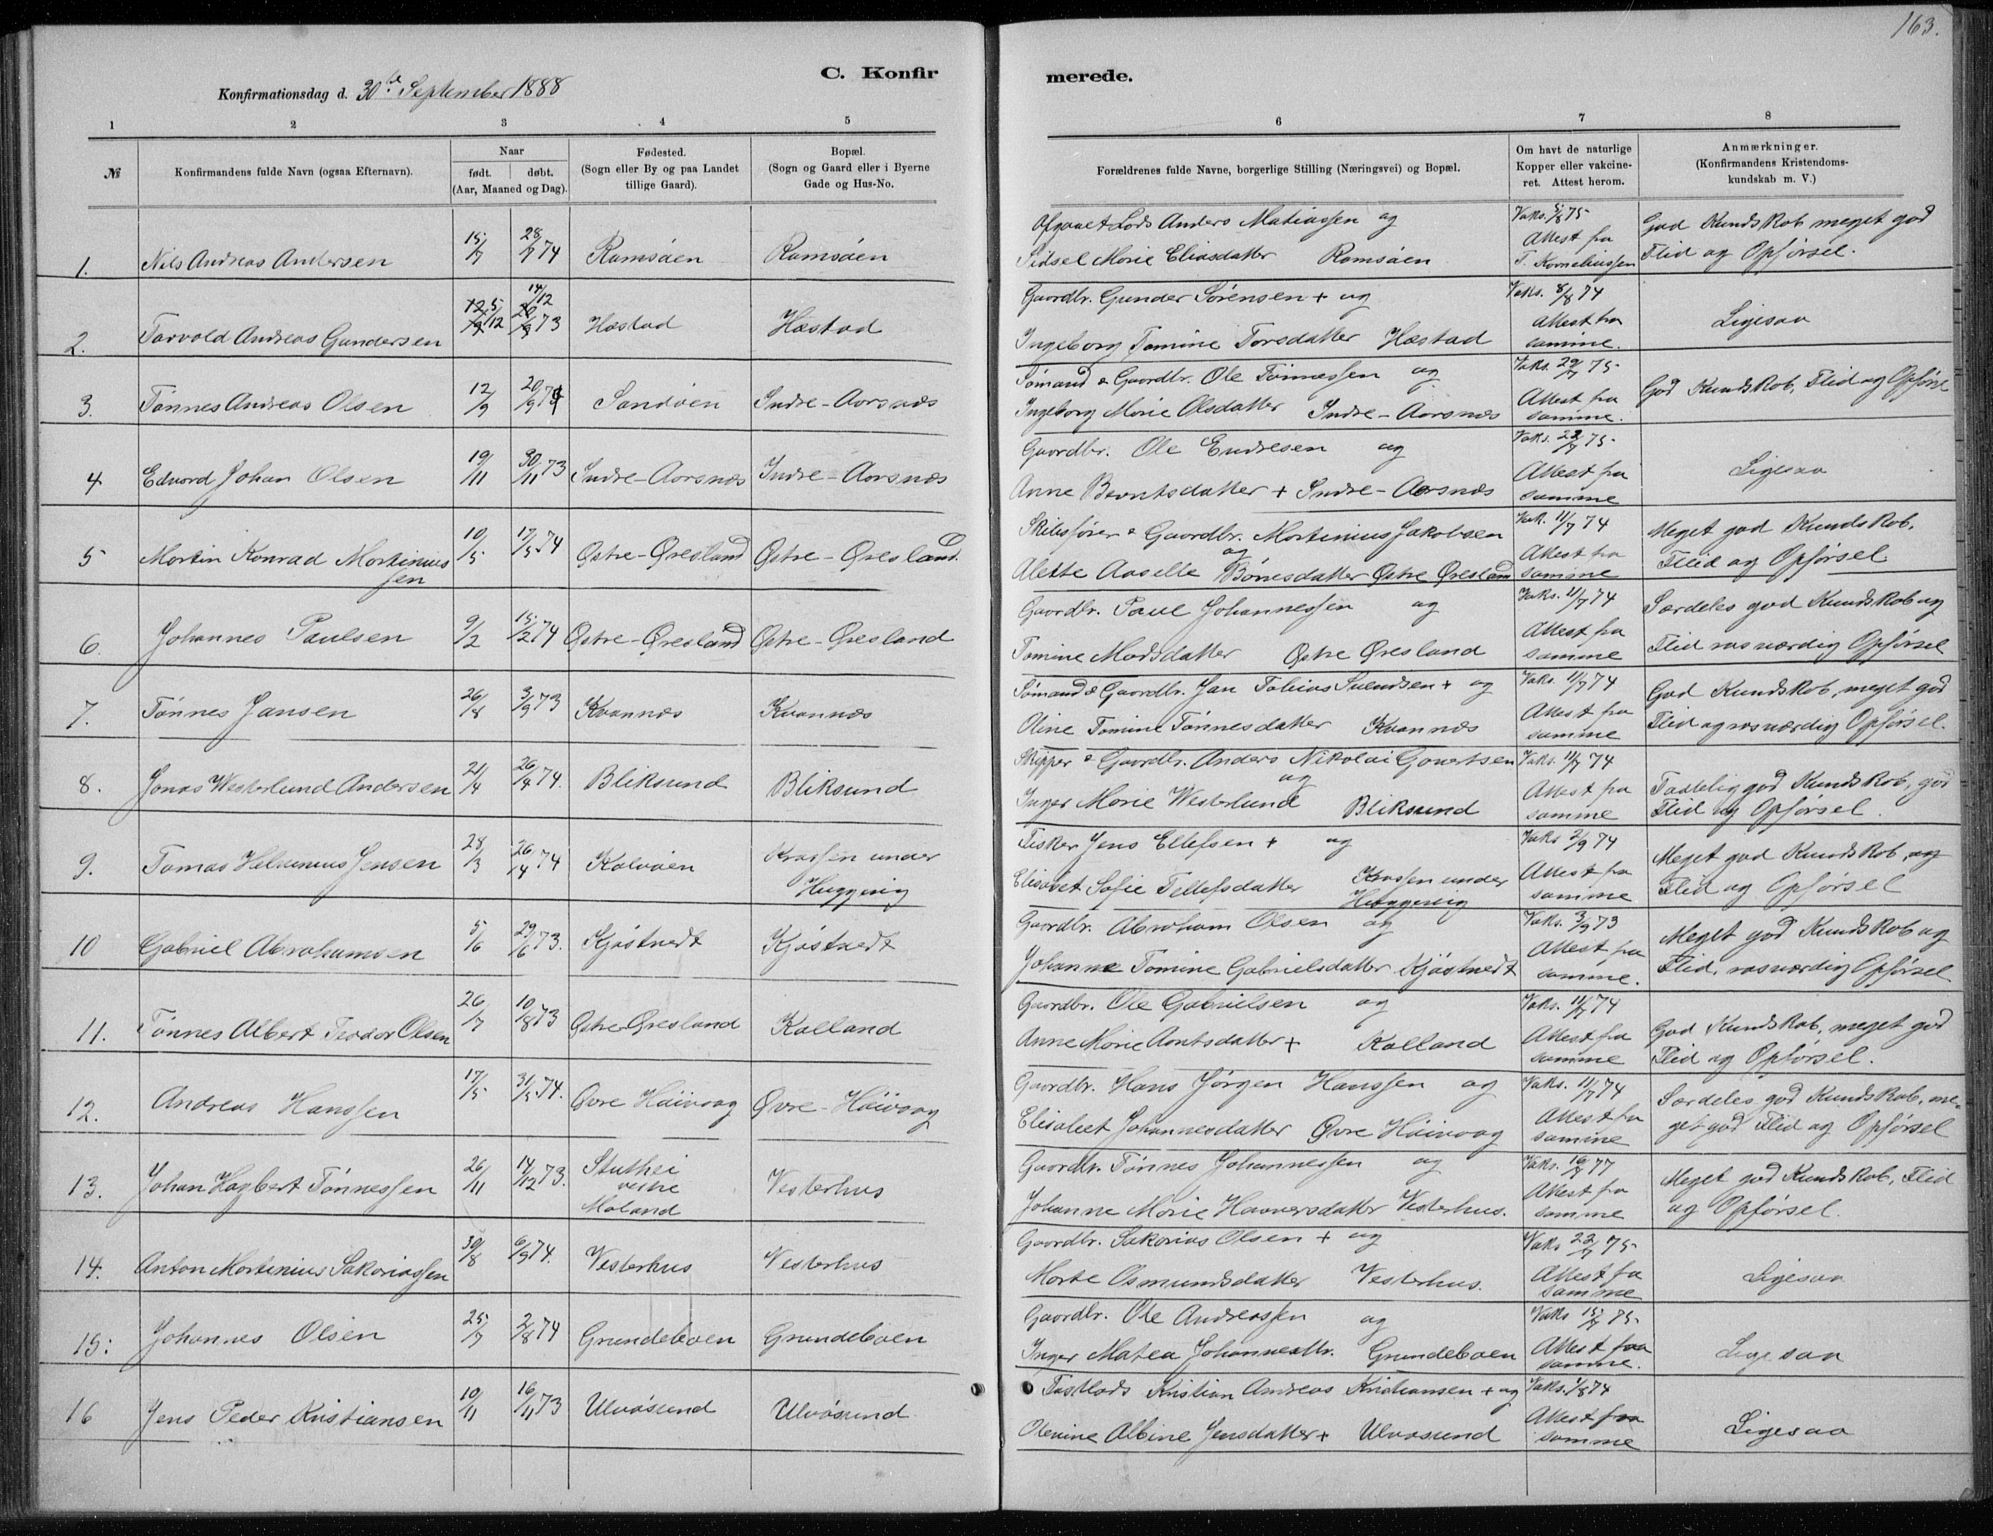 163.
C. Konfirmerede.
Konfirmationsdag d. 30te September 1888
1 2 3 4 5 6 7 8
№
Konfirmandens fulde Navn (ogsaa Efternavn).
Naar
født. døbt.
(Aar, Maaned og Dag).
Fødested.
(Sogn eller By og paa Landet
tillige Gaard).
Bopæl.
(Sogn og Gaard eller i Byerne
Gade og Hus-No.
Forældrenes fulde Navne, borgerlige Stilling (Næringsvei) og Bopæl.
Om havt de naturlige
Kopper eller vakcine-
ret. Attest herom.
Anmærkninger.
(Konfirmandens Kristendoms-
kundskab m. V.)
1. Nils Andreas Andersen 15/7 28/7 74 Ramsøen Ramsøen
Afgaaet Lods Anders Matiassen og
Sidsel Marie Eliasdatter Ramsøen
Vaks. 5/8 75
Attest fra
T. Korneliussen
God Kundskab meget god
Flid og Opførsel.
2. Torvald Andreas Gundersen 5/12 14/12 73 Hæstad Hæstad
Gaardbr. Gunder Sørensen + og
Ingeborg Tomine Torsdatter Hæstad
Vaks. 8/8 74
Attest fra
samme.
Ligesaa
3. Tønnes Andreas Olsen 12/9 20/9 74 Sandøen Indre-Aarsnæs
Sømand & Gaardbr. Ole Tønnessen og
Ingeborg Marie Olsdatter Indre-Aarsnæs
Vaks. 22/7 75
Attest fra
samme.
God Kundskab, Flid og Opførsel
4 Edvard Johan Olsen 19/11 30/11 73 Indre-Aarsnæs Indre-Aarsnæs
Gaardbr. Ole Endresen og
Anne Berntsdatter + Indre-Aarsnæs
Vaks. 22/7 75
Attest fra
samme
Ligesaa
5 Martin Konrad Martinius
sen 10/5 17/5 74 Østre-Øresland Østre-Øresland.
Skibsfører & Gaardbr. Martinius Jakobsen
og
Alette Aaselle Bønesdatter Østre Øresland
Vak. 11/7 74
Attest fra
samme
Meget god Kundskab,
Flid og Opførsel
6. Johannes Paulsen 9/2 15/2 74 Østre-Øresland Østre-Øresland
Gaardbr. Paul Johannessen og
Tomine Madsdatter Østre Øresland
Vaks. 11/7 74
Attest fra
samme
Særdeles god Kundskab og
Flid rosværdig Opførsel
7. Tønnes Jansen 26/8 3/9 73 Kvannæs Kvannæs
Sømand & Gaardbr. Jan Tobias Svendsen + og
Oline Tomine Tønnesdatter Kvannæs
Vaks. 11/7 74
Attest fra
samme
God Kundskab, meget god
Flid og rosværdig Opførsel.
8. Jonas Westerlund Andersen 21/4 26/4 74. Bliksund Bliksund
Skipper & Gaardbr. Anders Nikolai Govertsen
og
Inger Marie Westerlund Bliksund
Vaks. 11/7 74
Attest fra
samme
Taalelig god Kundskab, god
Flid og Opførsel.
9. Tomas Helmenius Jensen 28/3 26/4 74 Kalvøen Krossen under
Huggevig
Fisker Jens Ellefsen + og
Elisabet Sofie Tellefsdatter Krossen under
Huggevig
Vaks 2/9 74
Attest fra
samme
Meget god Kundskab og
Flid og Opførsel
10 Gabriel Abrahamsen 5/6 29/6 73. Kjøstvedt Kjøstvedt
Gaardbr. Abraham Olsen og
Johanne Tomine Gabrielsdatter Kjøstvedt
Vaks. 3/9 73
Attest fra
samme.
Meget god Kundskab og
Flid, rosværdig Opførsel
11. Tønnes Albert Teodor Olsen 26/7 10/8 73 Østre Øresland Kalland
Gaardbr. Ole Gabrielsen og
Anne Marie Arntsdatter + Kalland
Vaks. 11/7 74
Attest fra
samme
God Kundskab, meget god
Flid og Opførsel.
12. Andreas Hanssen 17/5 31/5 74. Øvre Høivaag Øvre-Høivaag
Gaardbr. Hans Jørgen Hanssen og
Elisabet Johannesdatter Øvre Høivaag
Vaks. 11/7 74
Attest fra
samme
Særdeles god Kundskab, me-
get god Flid og Opførsel
13. Johan Hagbert Tønnessen 26/11 14/12 73. Stuthei
vestre
Moland Vesterhus
Gaardbr. Tønnes Johannessen og
Johanne Marie Haaversdatter Vesterhus.
Vaks. 16/7 77
Attest fra
samme
Meget god Kundskab, Flid
og Opførsel.
14. Anton Martinius Sakariassen 30/8 6/9 74. Vesterhus Vesterhus
Gaardbr. Sakarias Olsen + og
Marte Osmundsdatter Vesterhus.
Vaks 22/7 75
Attest fra
samme
Ligesaa
15. Johannes Olsen 25/7 2/8 74 Grundeboen Grundeboen
Gaardbr. Ole Andreassen og
Inger Matea Johannesdtr. Grundeboen
Vaks 15/7 75
Attest fra
samme.
Ligesaa
16 Jens Peder Kristiansen 10/11 16/11 73 Ulvøsund Ulvøsund
Fastlods Kristian Andreas Kristiansen + og
Olevine Albine Jensdatter + Ulvøsund
Vaks. 1/8 74
Attest fra
samme
Ligesaa